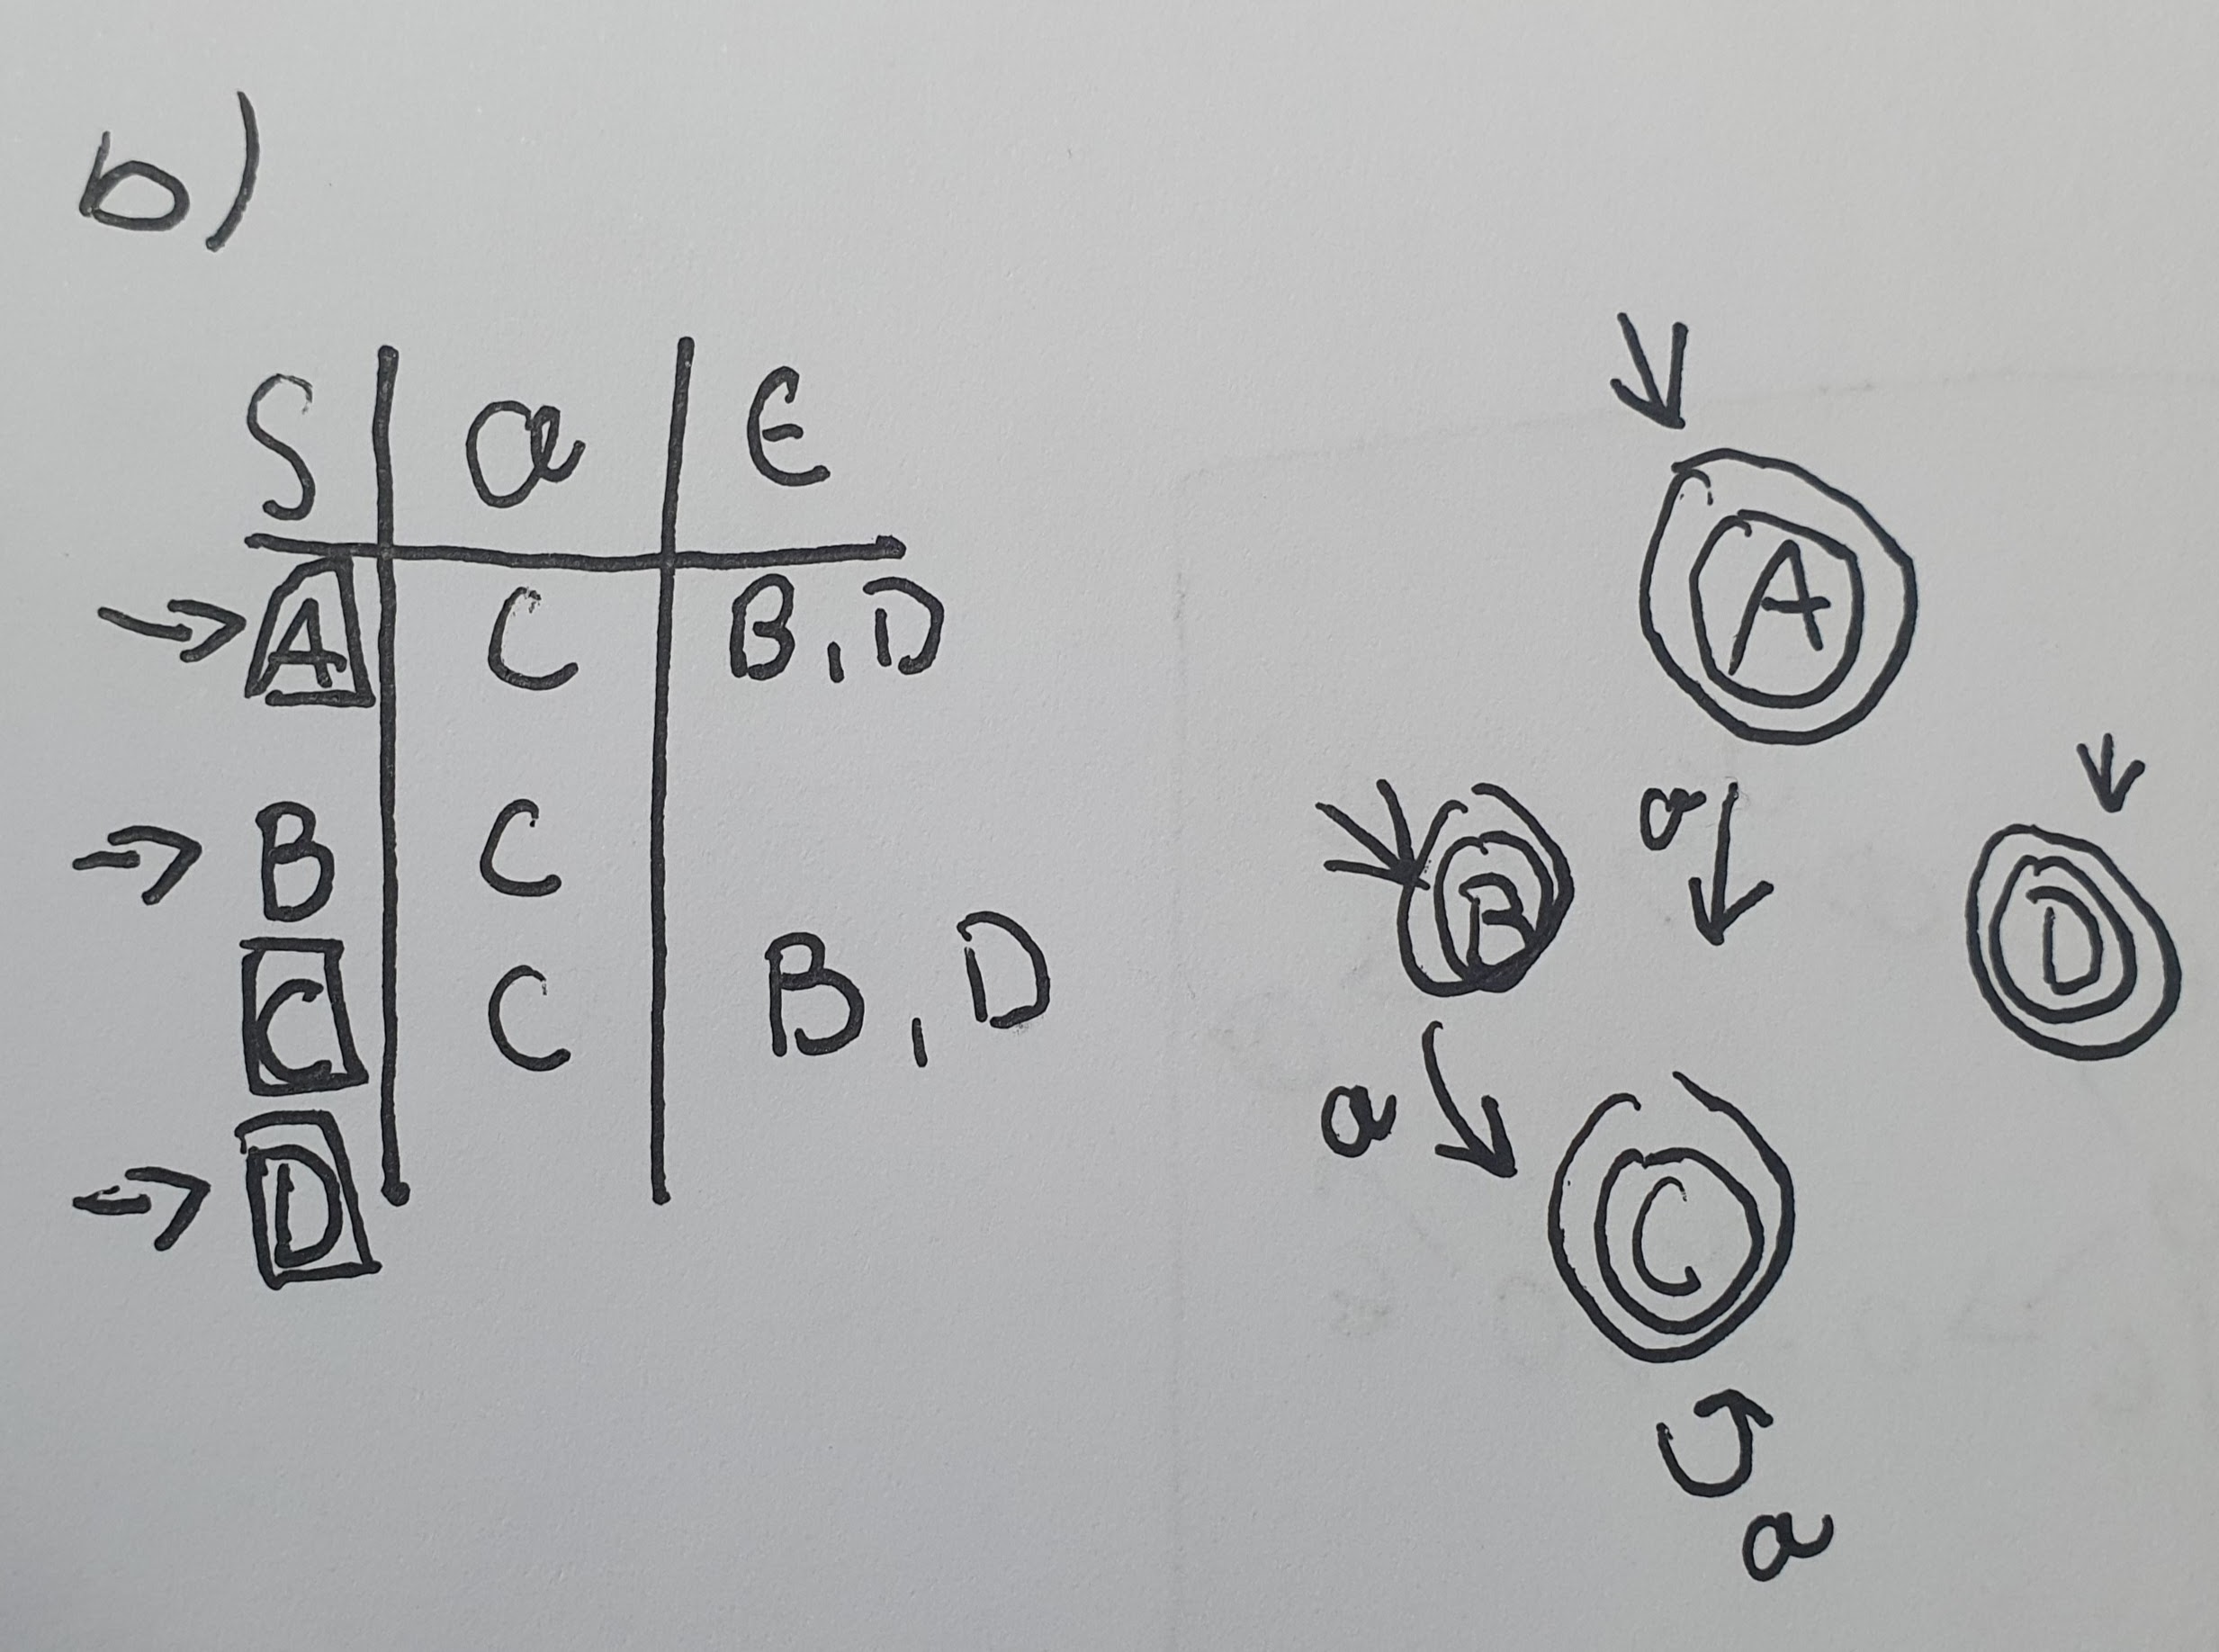 b)
S a ε
→ A C B, D
→ B C
C C B, D
→ D
A
a
B
D
a
C
a